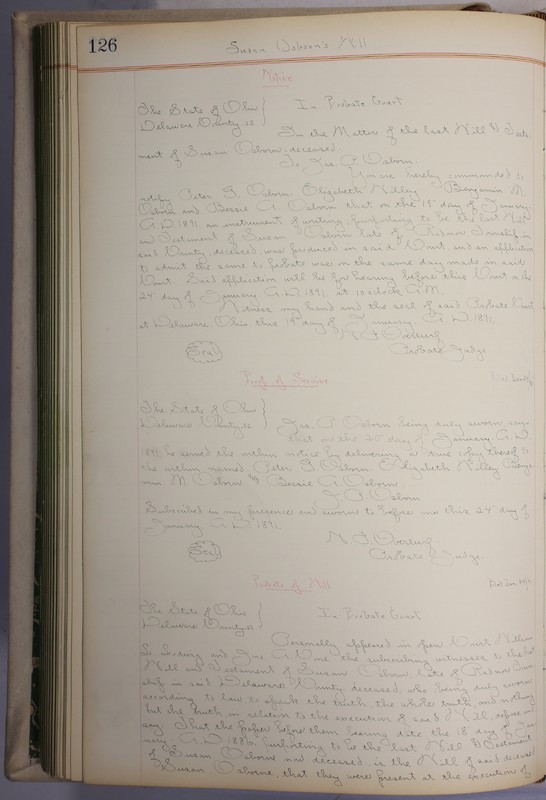 126
Susan Osborn's Will
Notice
The State of Ohio }
Delaware County ss } In Probate Court
In the Matter of the last Will & Testa-
ment of Susan Osborn deceased.
To Jas. P. Osborn.
You are hereby commanded to
notify Peter Osborn, Elizabeth Benjamin M.
Osborn and Bessie A. Osborn that on the 15" day of January
A.D. 1891, an instrument of writing, purporting to be the last Will
and Testament of Susan Osborn late of Radnor Township in
said County deceased, was produced in said Court, and an application
to admit the same to probate was on the same day made in said
Court. Said application will be for hearing before this Court on the
24" day of January A.D. 1891, at 10 o'clock A.M.
Witness my hand and the seal of said Probate Court
at Delaware, Ohio this 19" day of January A.D. 1891.
Probate Judge
Seal
Proof of Service
The State of Ohio }
Delaware County ss } Jas. P. Osborn being duly sworn, says
that on the day of January A.D.
1891 he served the within notice by delivering a true copy thereof to
the within named Peter Osborn, Elizabeth Benja-
min M. Osborn & Bessie A. Osborn.
J. P. Osborn
Subscribed in my presence and sworn to before me this 24" day of
January A.D. 1891.
Probate Judge.
Seal
Probate of Will
The State of Ohio }
Delaware County ss } In Probate Court
Personally appeared in open Court William
and the subscribing witnesses to the last
Will and Testament of Susan Osborn, late of Radnor Town-
ship in said Delaware County deceased, who being duly sworn
according to law, to speak the truth, the whole truth, and nothing
but the truth, in relation to the execution of said Will, depose and
say: That the paper before them bearing date the 18" day of
A.D. purporting to be the last Will & Testament
of Susan Osborne now deceased, is the Will of said deceased
Susan Osborne, that they were present at the execution of